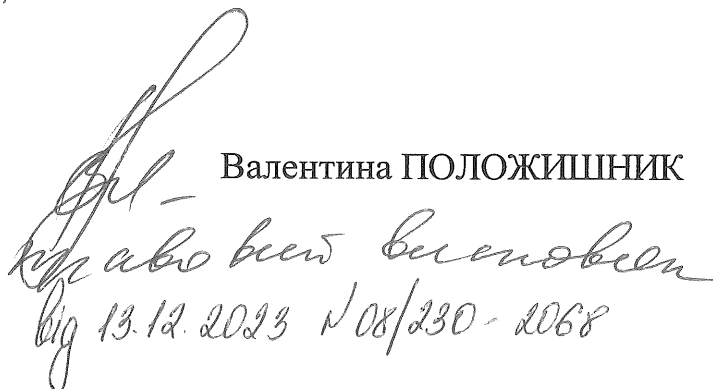 Валентина ПОЛОЖИШНИК
правовий висновок
від 13.12.2023 N 08/230-2068